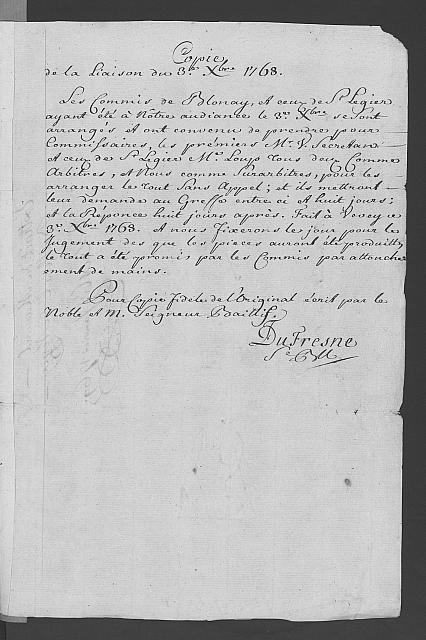 Copie
de la Liaison du 3e. Xbre 1768.
Les Commis de Blonay, et ceux de St Legier
ayant été à Nôtre audiance le 3e. Xbre se sont
arrangés et ont convenu de prendre pour
Commissaires, les premiers Mr. V. Secretan
et ceux de St Légier Mr. Loup tous deux Comme
Arbitres, et Nous comme Surarbitres, pour les
arranger le tout Sans Appel; et ils mettront
leur demande au Greffe entre ci et huit jours;
et la Réponce huit jours après. Fait à Vevey ce
3e. Xbre 1768. et nous fixerons le jour pour le
Jugement des que les pieces auront été produittes
le tout a été promis par les Commis par attouche
ment de mains.
Pour Copie fidele de l'Original écrit par le
Noble et M. Seigneur Baillif.
DuFresne